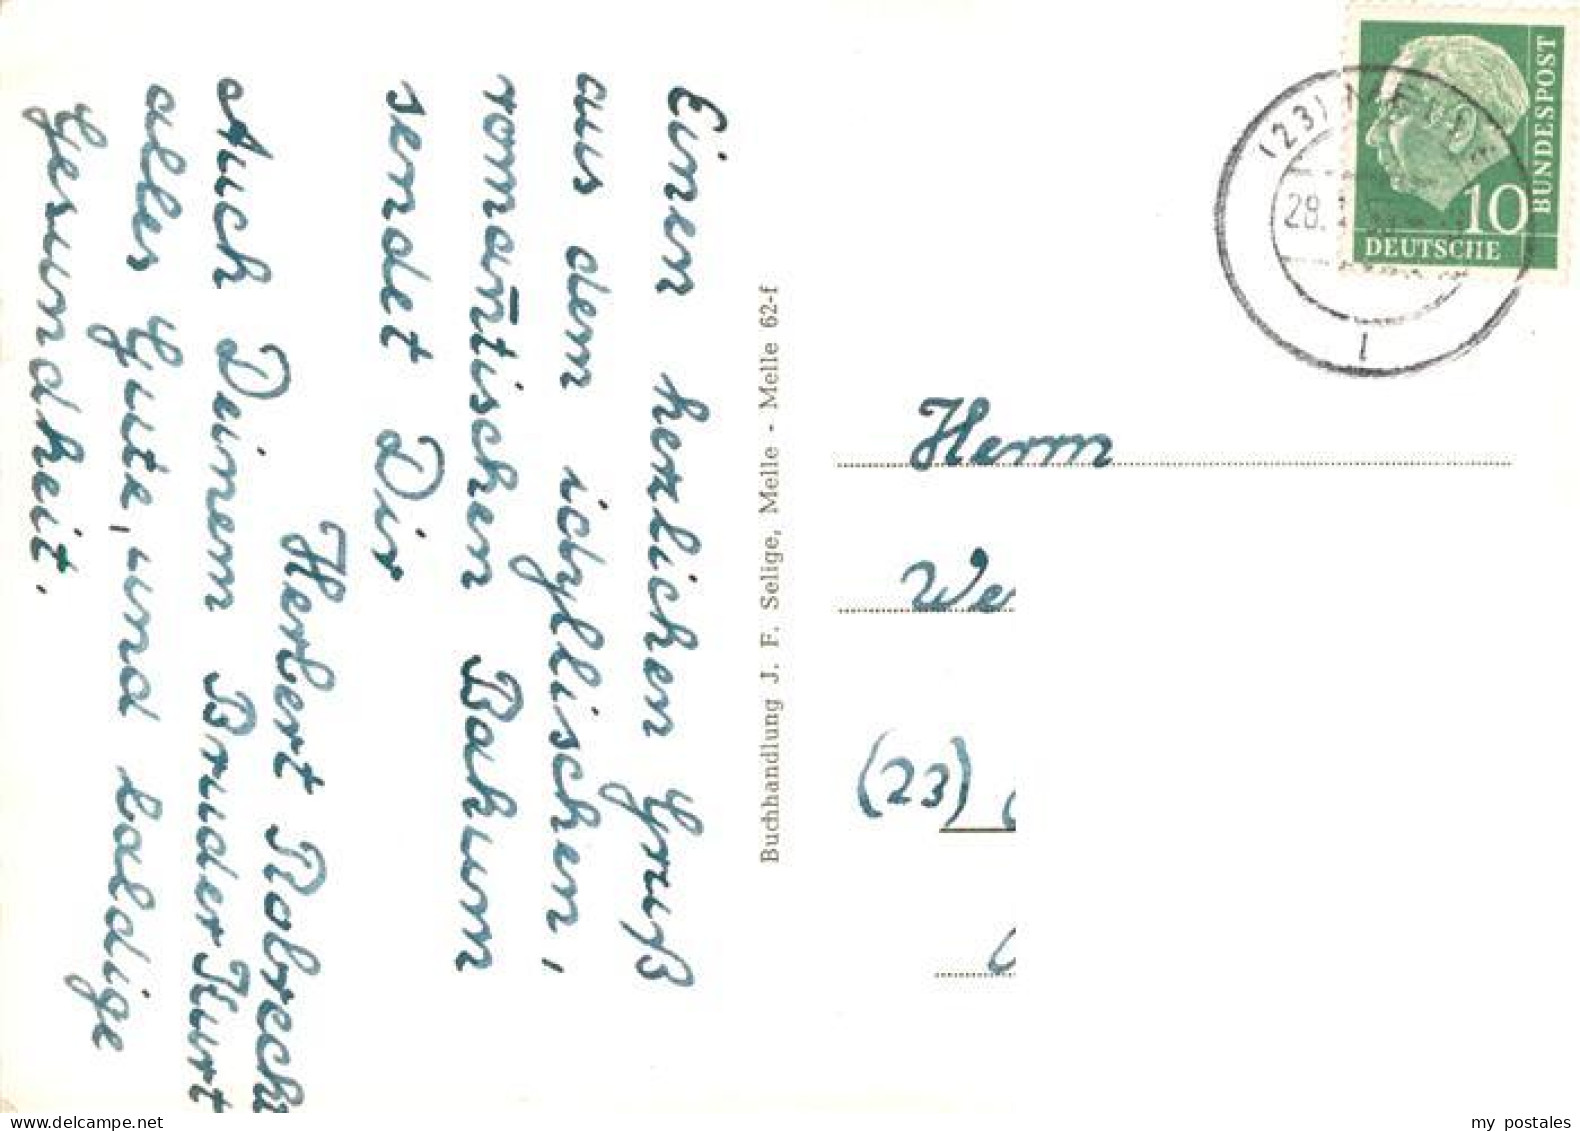 Einen herzlichen Gruß
aus dem idyllischen,
romantischen Bakum
sendet Dir
Herbert Robrecht
Auch Deinem Bruder Kurt
alles Gute, und baldige
Gesundheit.
Buchhandlung J. F. Selige, Melle - Melle 62-f
(23)
28.
1
10
DEUTSCHE
BUNDESPOST
Herrn
(23)
my postales